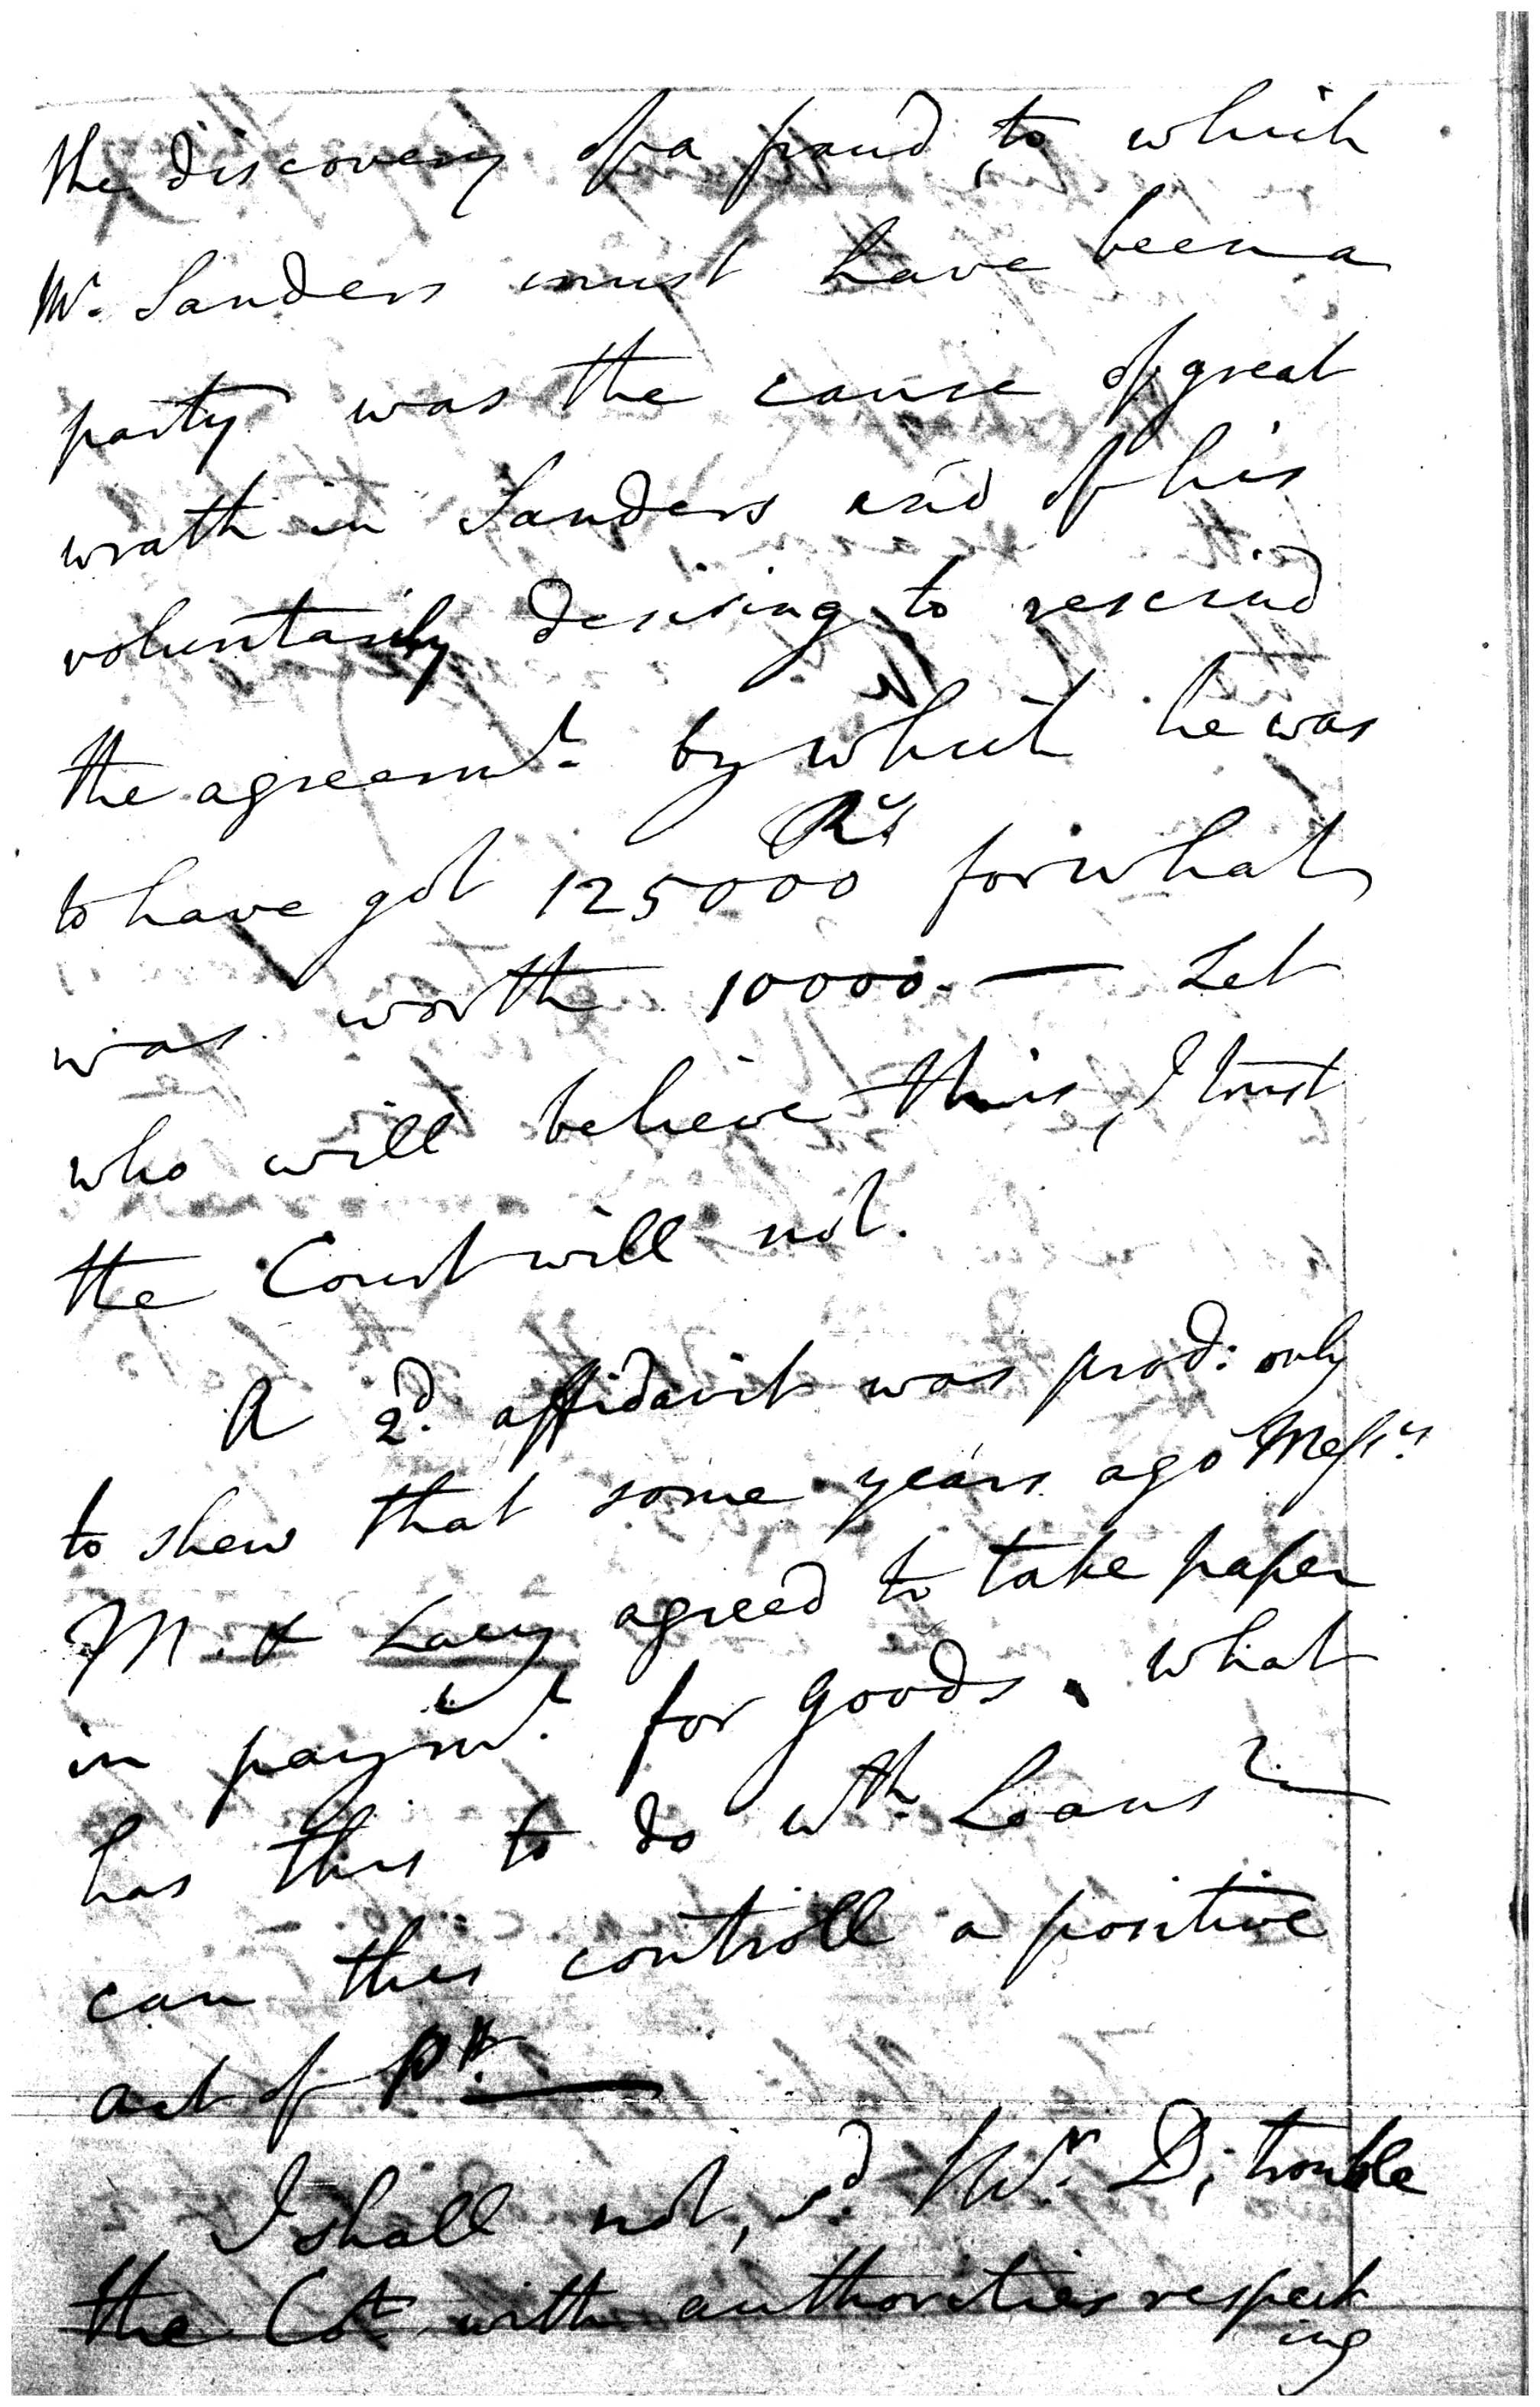 the discovery of a fraud, to which
Mr. Sanders must have been a
party was the cause of great
wrath in Sanders and of his
voluntarily desiring to rescind
the agreemt. by which he was
to have got 125000 Rs for what
was worth 10000. — Let
who will believe this, I trust
the Court will not.
A 2d. affidavit was prod: only
to shew that some years ago Messrs
M. & Lacy agreed to take paper
in paymt. for goods. what
has this to do wth. Loans?
can this controll a positive
act of Pt. —
I shall not, sd. Mr. D; trouble
the Ct. with authorities respect
ing